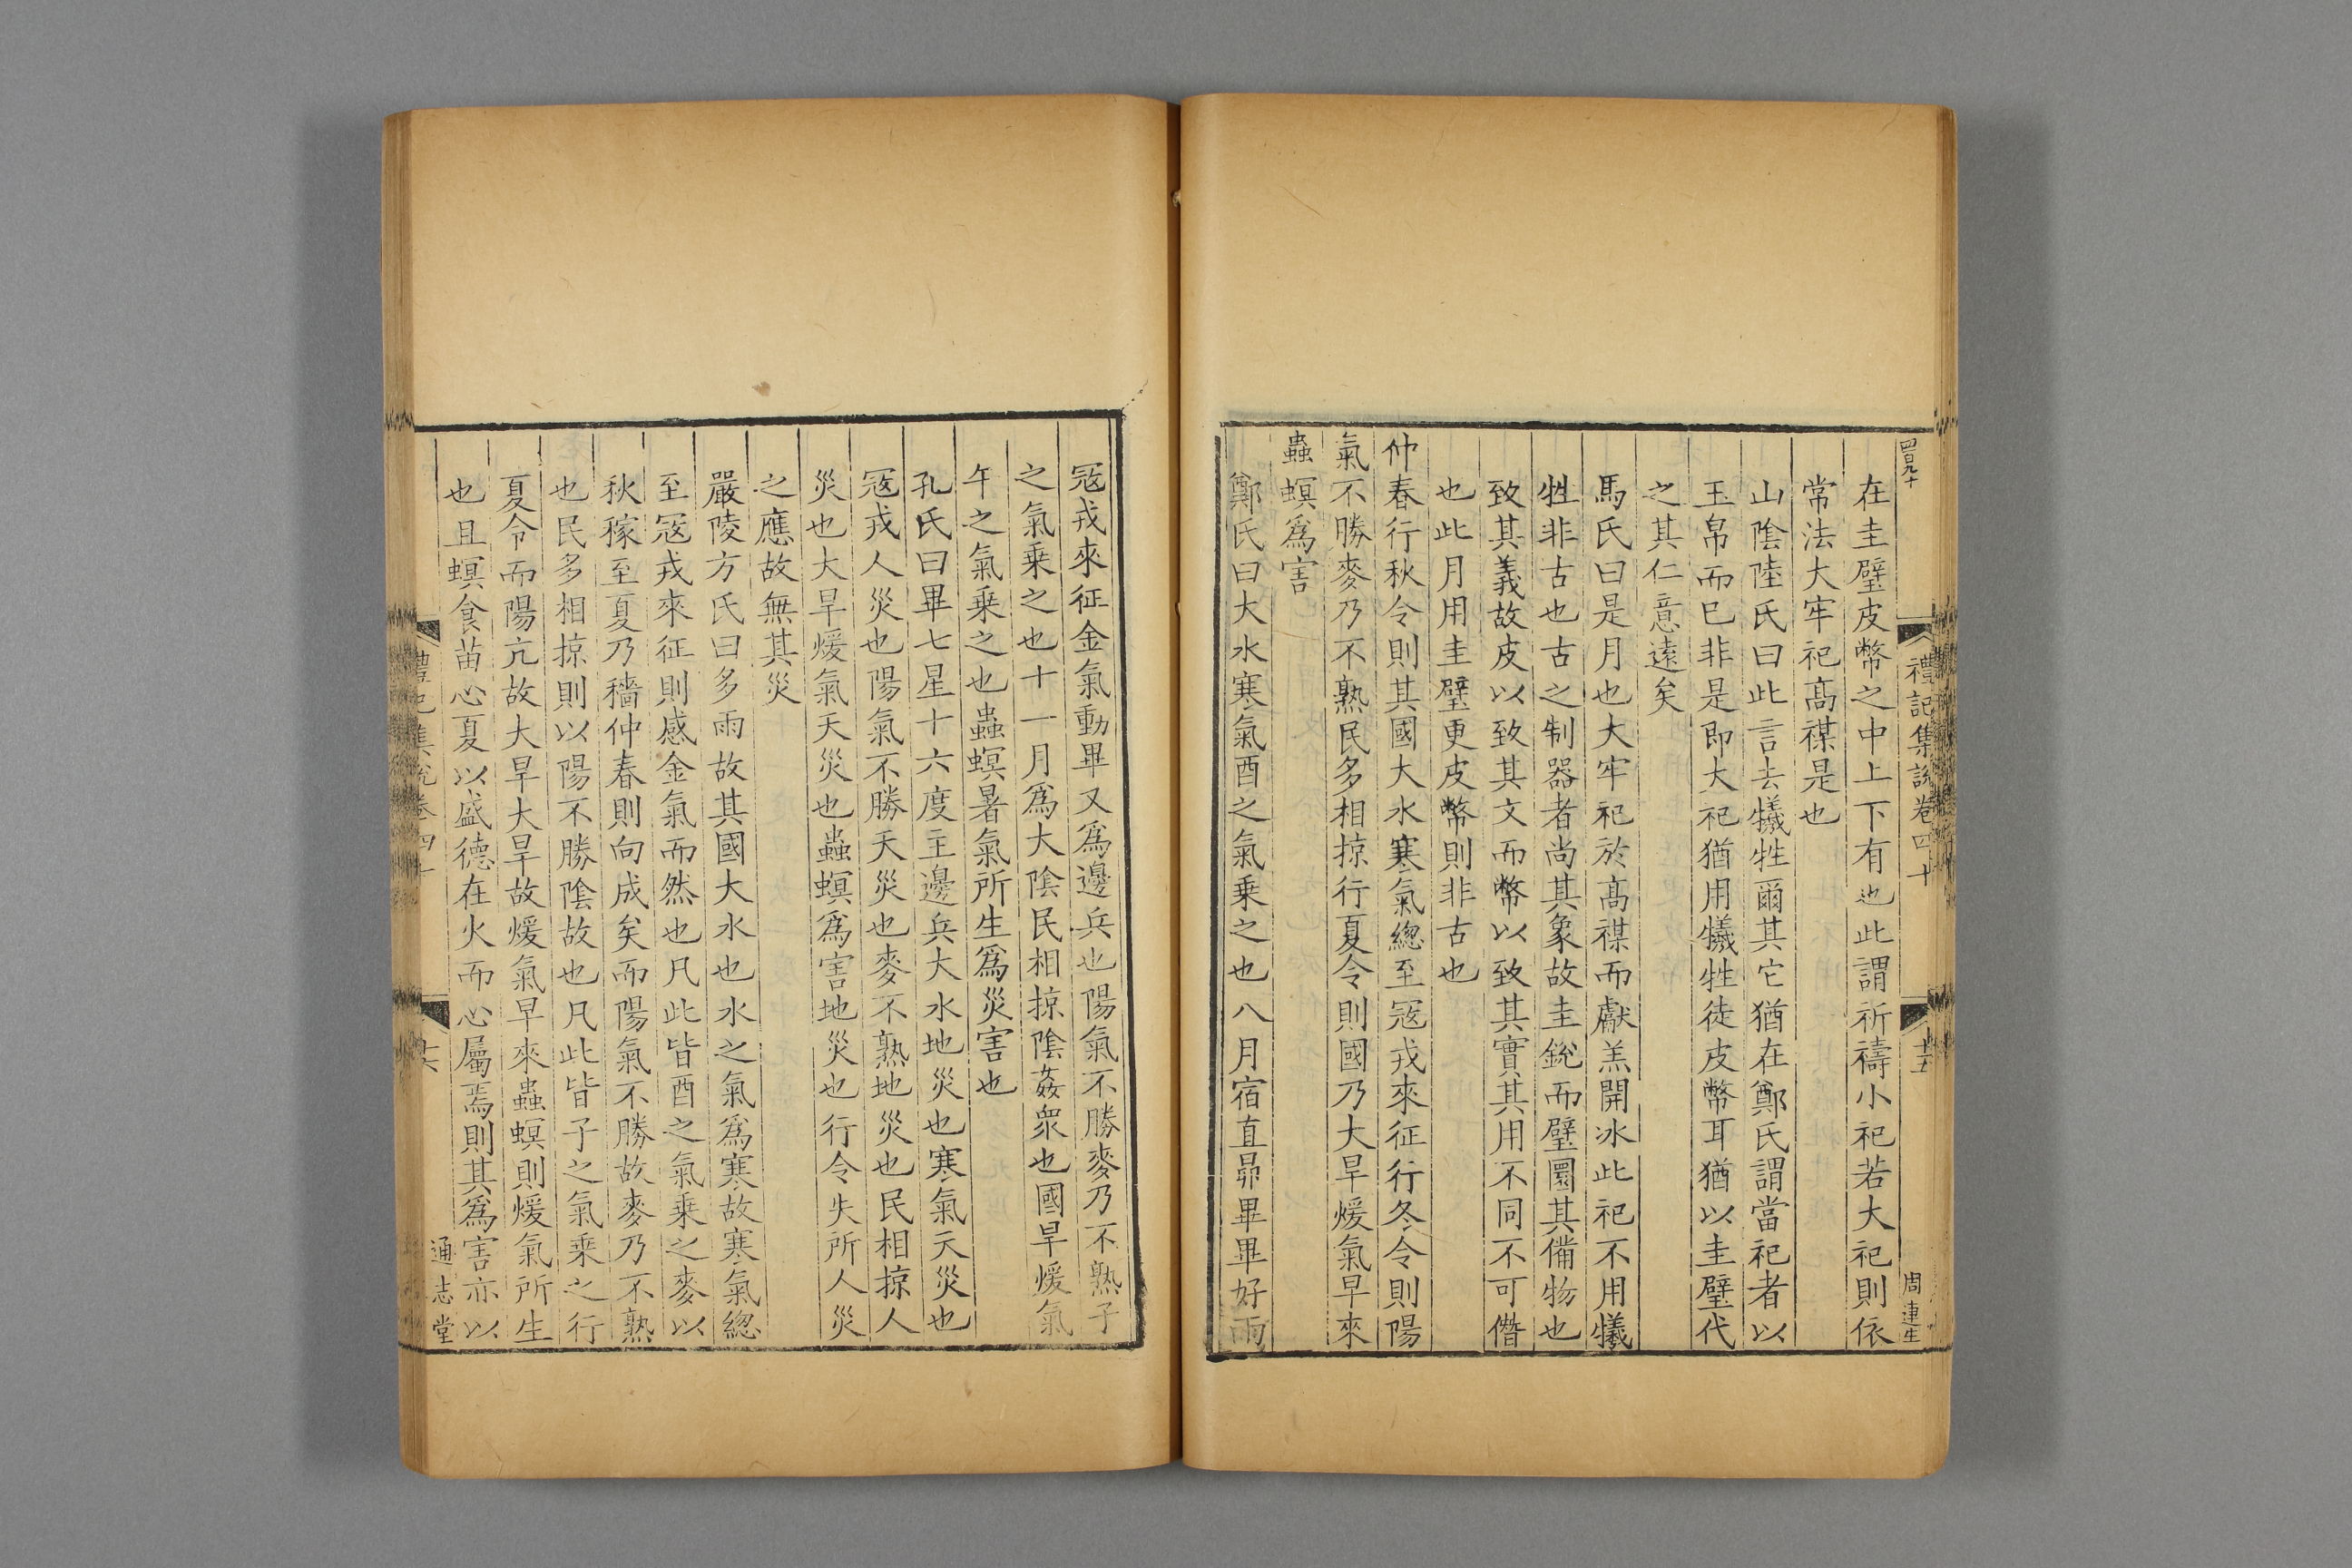 四百九十
禮記集說卷四十
十五
周連生
在圭璧皮幣之中上下有也此謂祈禱小祀若大祀則依
常法大牢祀高禖是也
山陰陸氏曰此言去犧牲爾其它猶在鄭氏謂當祀者以
玉帛而已非是即大祀猶用犧牲徒皮幣耳猶以圭璧代
之其仁意遠矣
馬氏曰是月也大牢祀於高禖而獻羔開冰此祀不用犧
牲非古也古之制器者尚其象故圭銳而璧圜其備物也
致其義故皮以致其文而幣以致其實其用不同不可僭
也此月用圭璧更皮幣則非古也
仲春行秋令則其國大水寒氣緫至寇戎來征行冬令則陽
氣不勝麥乃不熟民多相掠行夏令則國乃大旱煖氣早來
蟲螟爲害
鄭氏曰大水寒氣酉之氣乗之也八月宿直昴畢畢好雨
寇戎來征金氣動畢又爲邊兵也陽氣不勝麥乃不熟子
之氣乗之也十一月爲大陰民相掠陰姦衆也國旱煖氣
午之氣乗之也蟲螟暑氣所生爲災害也
孔氏曰畢七星十六度主邊兵大水地災也寒氣天災也
寇戎人災也陽氣不勝天災也麥不熟地災也民相掠人
災也大旱煖氣天災也蟲螟爲害地災也行令失所人災
之應故無其災
嚴陵方氏曰多雨故其國大水也水之氣爲寒故寒氣緫
至寇戎來征則感金氣而然也凡此皆酉之氣乗之麥以
秋稼至夏乃穡仲春則向成矣而陽氣不勝故麥乃不熟
也民多相掠則以陽不勝陰故也凡此皆子之氣乗之行
夏令而陽亢故大旱大旱故煖氣早來蟲螟則煖氣所生
也且螟食苗心夏以盛德在火而心屬焉則其爲害亦以
禮記集說卷四十
十六
通志堂